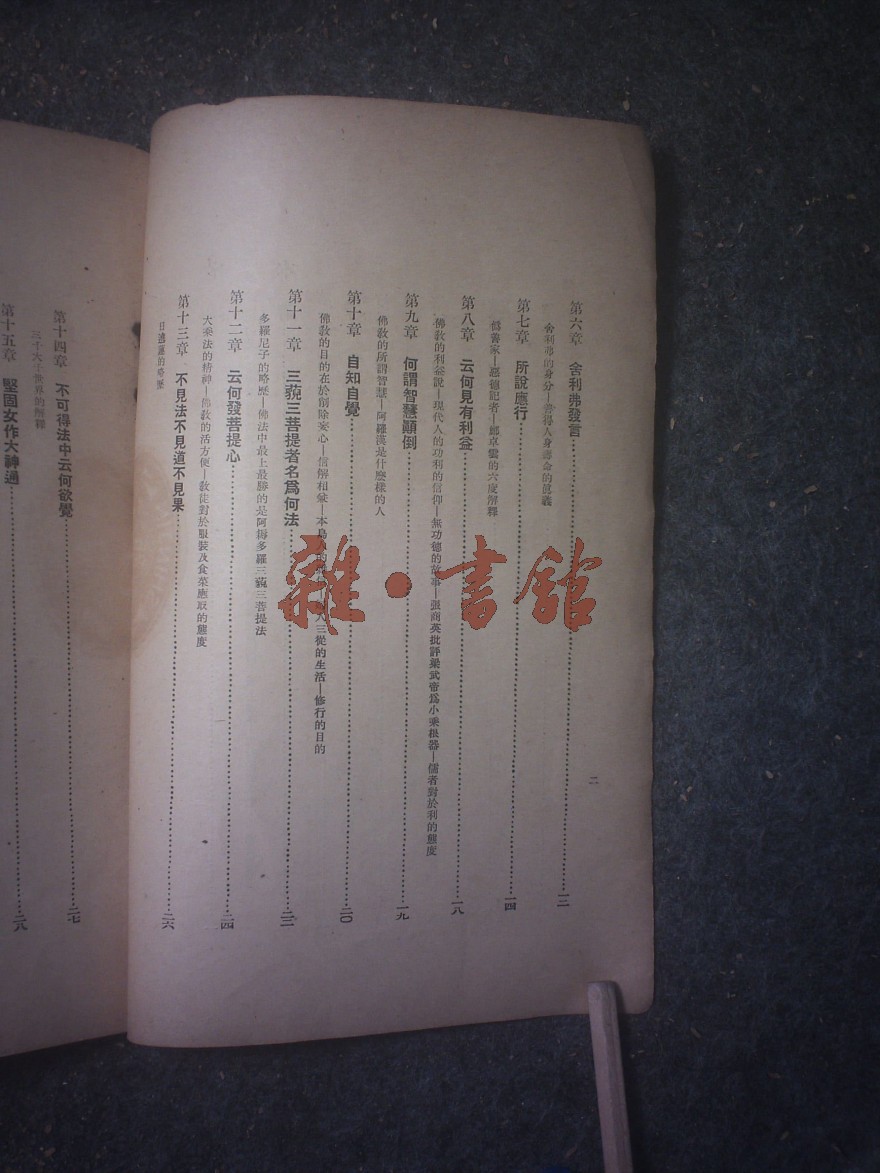 第六章 舍利弗發言 一三
舍利弗的身分—善得人身壽命的眞義
第七章 所說應行 一四
慈善家—惡德記者—鄧卓雲的六度解釋
第八章 云何見有利益 一八
佛教的利益說—現代人的功利的信仰—無功德的故事—張商英批評梁武帝爲小乘根器—儒者對於利的態度
第九章 何謂智慧顚倒 一九
佛教的所謂智慧—阿羅漢是什麼樣的人
第十章 自知自覺 二〇
佛教的目的在於剷除妄心—信解相兼—本島 人三從的生活—修行的目的
第十一章 三藐三菩提者名爲何法 二二
多羅尼子的略歷—佛法中最上最勝的是阿耨多羅三藐三菩提法
第十二章 云何發菩提心 二四
大乘法的精神—佛教的活方便—教徒對於服裝及食菜應取的態度
第十三章 不見法不見道不見果 二六
目連的略歷
第十四章 不可得法中云何欲覺 二七
三千大千世界的解釋
第十五章 堅固女作大神通 二八
二
雜·書館